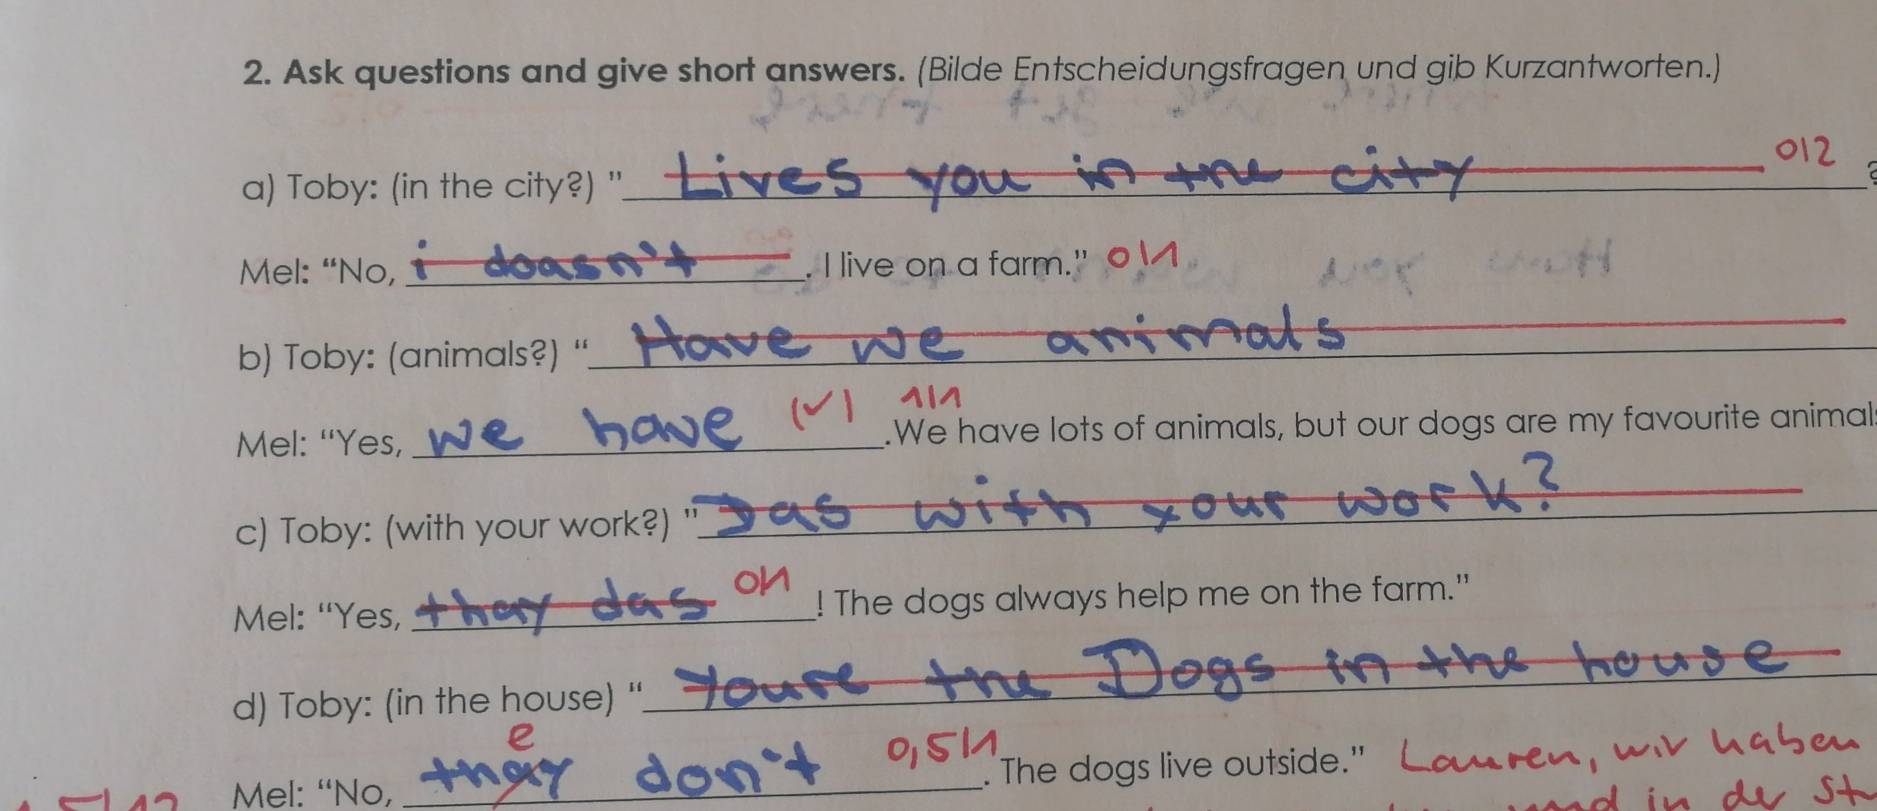 2. Ask questions and give short answers. (Bilde Entscheidungsfragen und gib Kurzantworten.)
a) Toby: (in the city?) "Lives you in the city 0/2 ?
Mel: “No, i doasn't. I live on a farm." 0/1
b) Toby: (animals?) “Have we animals
Mel: “Yes, we have (✓) 1/1 .We have lots of animals, but our dogs are my favourite animal
c) Toby: (with your work?) "Das with your work?
Mel: “Yes, thay das 0/1 ! The dogs always help me on the farm."
d) Toby: (in the house) “Youre the Dogs in the house
e
Mel: “No, thay don't 0,5/1 . The dogs live outside." Lauren, wir haben
und in der